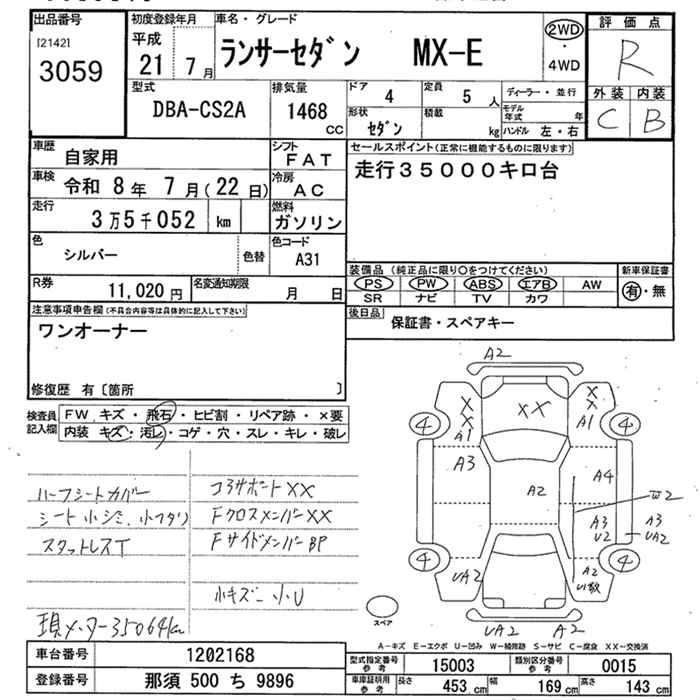 出品番号
[2142]
3059
初度登録年月
平成
21 7月
車名・グレード
ランサーセダン MX-E
2WD
・
4WD
評価点
R
外装 内装
C B
型式
DBA-CS2A
排気量
1468
CC
ドア 4
定員 5 人
形状 セダン
積載 kg
ディーラー・並行
モデル年式 年
ハンドル 左・右
車歴 自家用
シフト FAT
車検 令和 8年 7月(22日)
冷房 AC
走行 3万5千052 km
燃料 ガソリン
色 シルバー 色替
色コード A31
セールスポイント(正常に機能するものに限ります)
走行35000キロ台
装備品(純正品に限り〇をつけてください)
PS PW ABS エアB AW
SR ナビ TV カワ
新車保証書
有・無
R券 11,020円
名変通知期限 月 日
後日品 保証書・スペアキー
注意事項申告欄(不具合内容等は具体的に記入して下さい)
ワンオーナー
修復歴 有〔箇所 〕
検査員記入欄
FW キズ・飛石・ヒビ割・リペア跡・×要
内装 キズ・汚レ・コゲ・穴・スレ・キレ・破レ
ハーフシートカバー
シート小シミ、小ヘタリ
スタットレスT
現メーター35064km
コアサポートXX
FクロスメンバーXX
FサイドメンバーBP
小キズ、小U
A2
XX
X
X
X
A1
X
X
A1
4
4
A3
A2
A4
W2
A3
U2
A3
UA2
4
4
UA2
A2
U1数
UA2
A2
スペア
A-キズ E-エクボ U-凹み W-補修跡 S-サビ C-腐食 XX-交換済
車台番号 1202168
登録番号 那須 500 ち 9896
型式指定番号 参考 15003
類別区分番号 参考 0015
車庫証明用 参考
長さ 453 cm
幅 169 cm
高さ 143 cm